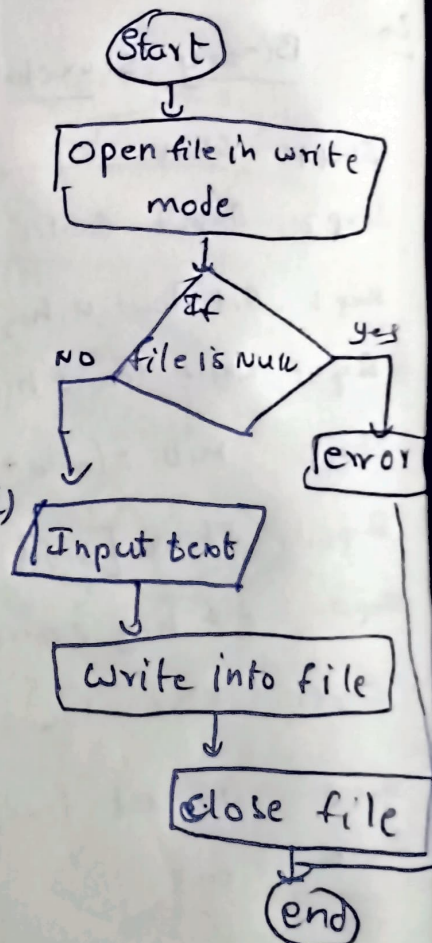 Start
Open file in write
mode
If
file is Null
NO
yes
error
Input text
write into file
close file
end